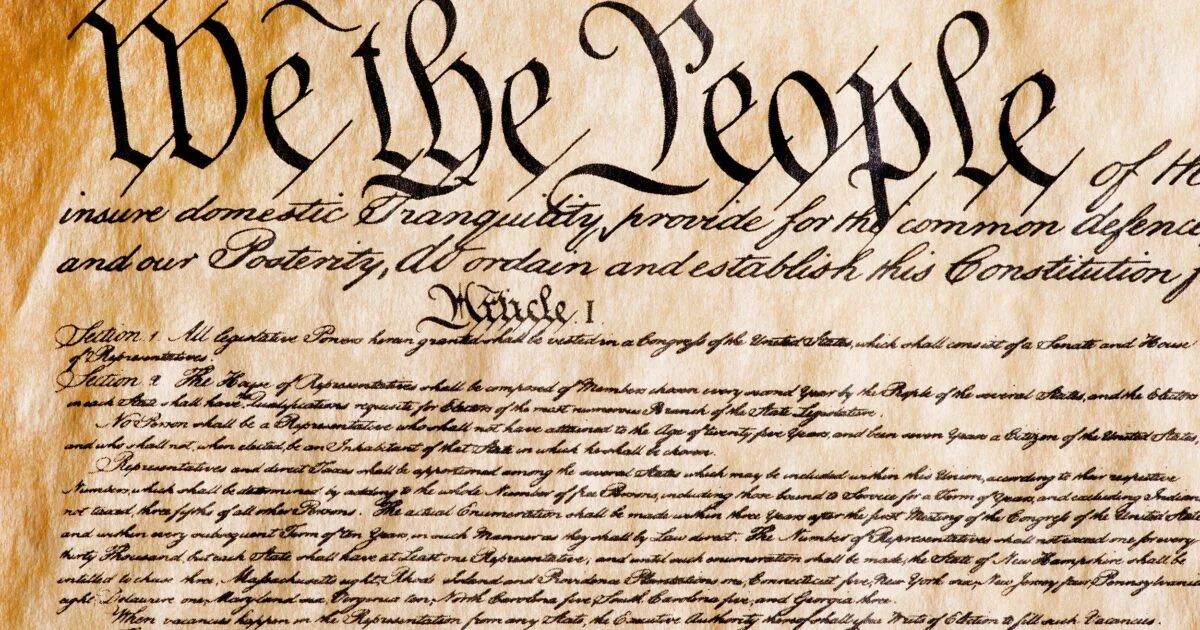 We the People of th
insure domestic Tranquility, provide for the common defence
and our Posterity, do ordain and establish this Constitution f
Article. I.
Section. 1. All legislative Powers herein granted shall be vested in a Congress of the United States, which shall consist of a Senate and House
of Representatives.
Section. 2. The House of Representatives shall be composed of Members chosen every second Year by the People of the several States, and the Electors
in each State shall have the Qualifications requisite for Electors of the most numerous Branch of the State Legislature.
No Person shall be a Representative who shall not have attained to the Age of twenty five Years, and been seven Years a Citizen of the United States,
and who shall not, when elected, be an Inhabitant of that State in which he shall be chosen.
Representatives and direct Taxes shall be apportioned among the several States which may be included within this Union, according to their respective
Numbers, which shall be determined by adding to the whole Number of free Persons, including those bound to Service for a Term of Years, and excluding Indians
not taxed, three fifths of all other Persons. The actual Enumeration shall be made within three Years after the first Meeting of the Congress of the United States,
and within every subsequent Term of ten Years, in such Manner as they shall by Law direct. The Number of Representatives shall not exceed one for every
thirty Thousand, but each State shall have at Least one Representative; and until such enumeration shall be made, the State of New Hampshire shall be
entitled to chuse three, Massachusetts eight, Rhode Island and Providence Plantations one, Connecticut five, New York six, New Jersey four, Pennsylvania
eight, Delaware one, Maryland six, Virginia ten, North Carolina five, South Carolina five, and Georgia three.
When vacancies happen in the Representation from any State, the Executive Authority thereof shall issue Writs of Election to fill such Vacancies.